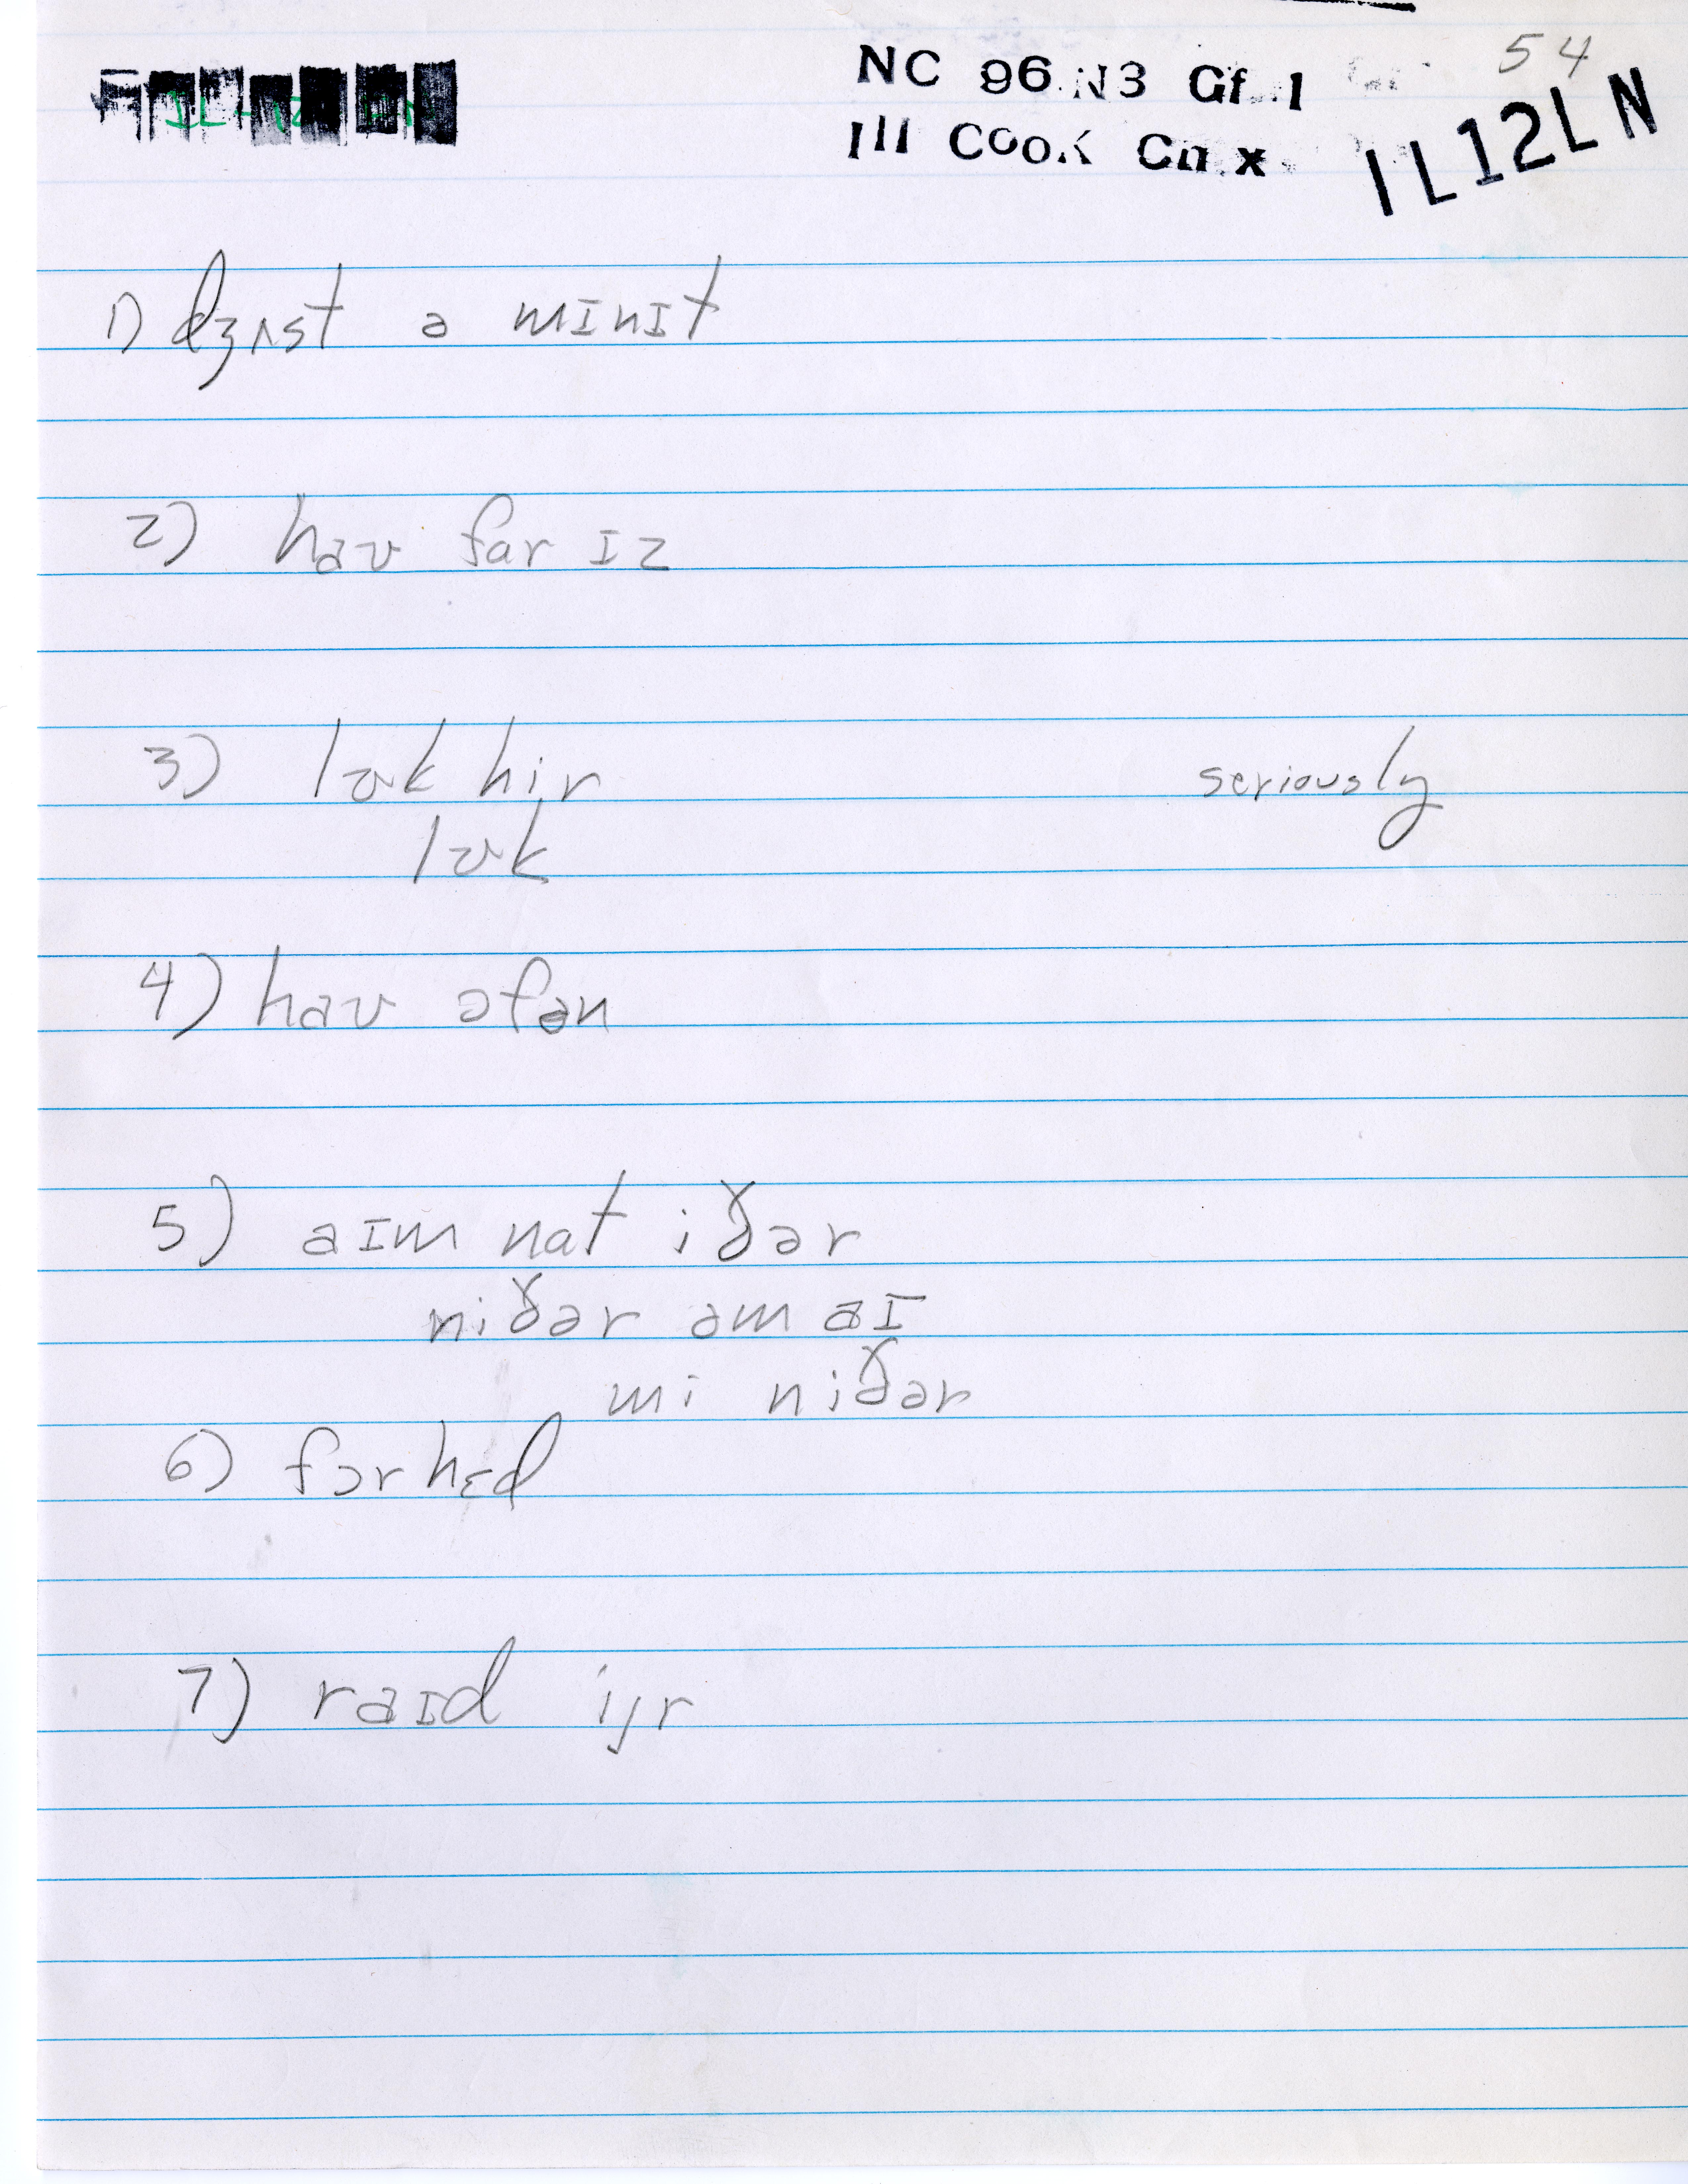 54
NC 96 N3 Gf 1
Ill Cook Cn.x
IL12LN
1) dʒʌst ə mɪnɪt
2) haʊ far ɪz
3) lʊk hir seriously
lʊk
4) haʊ ɔfən
5) aɪm nat iðər
niðər əm aɪ
mi niðər
6) fɔrhɛd
7) raɪd ijr